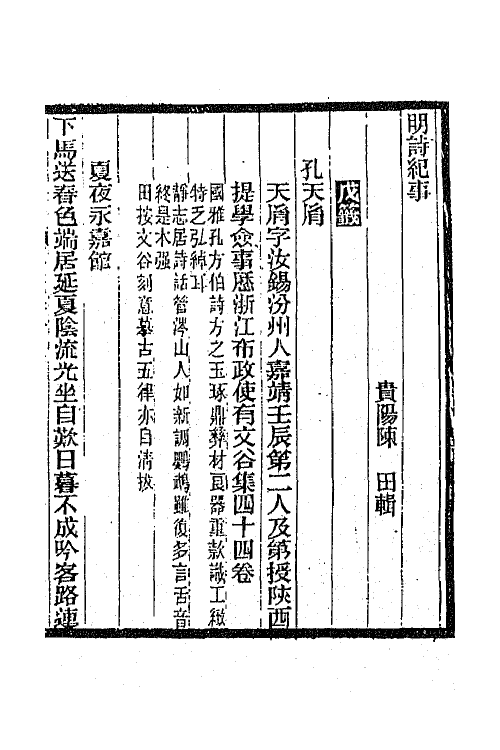 明詩紀事
貴陽陳　田輯
戊籤
孔天胤
天胤字汝錫汾州人嘉靖壬辰第二人及第授陝西
提學僉事歷浙江布政使有文谷集四十四卷
國雅孔方伯詩方之玉琢鼎彝材良器重款識工緻
特乏弘綽耳
靜志居詩話管涔山人如新調鸚鵡雖復多言舌音
終是木强
田按文谷刻意摹古五律亦自淸拔
夏夜永嘉館
下馬送春色端居延夏陰流光坐自歎日暮不成吟客路連